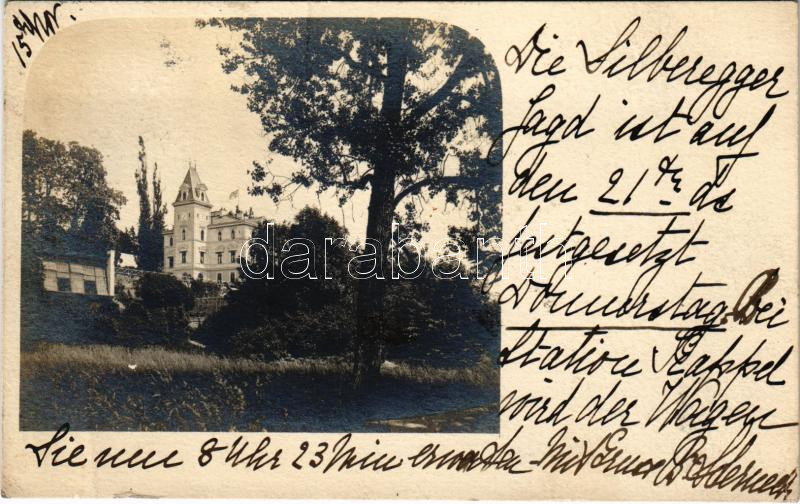 15/IV.
Die Silberegger
Jagd ist auf
den 21ten ds
festgesetzt
Donnerstag. Bei
Station Kappel
wird der Wagen
Sie um 8 Uhr 23 Min erwarten. Mit
darabanth.com